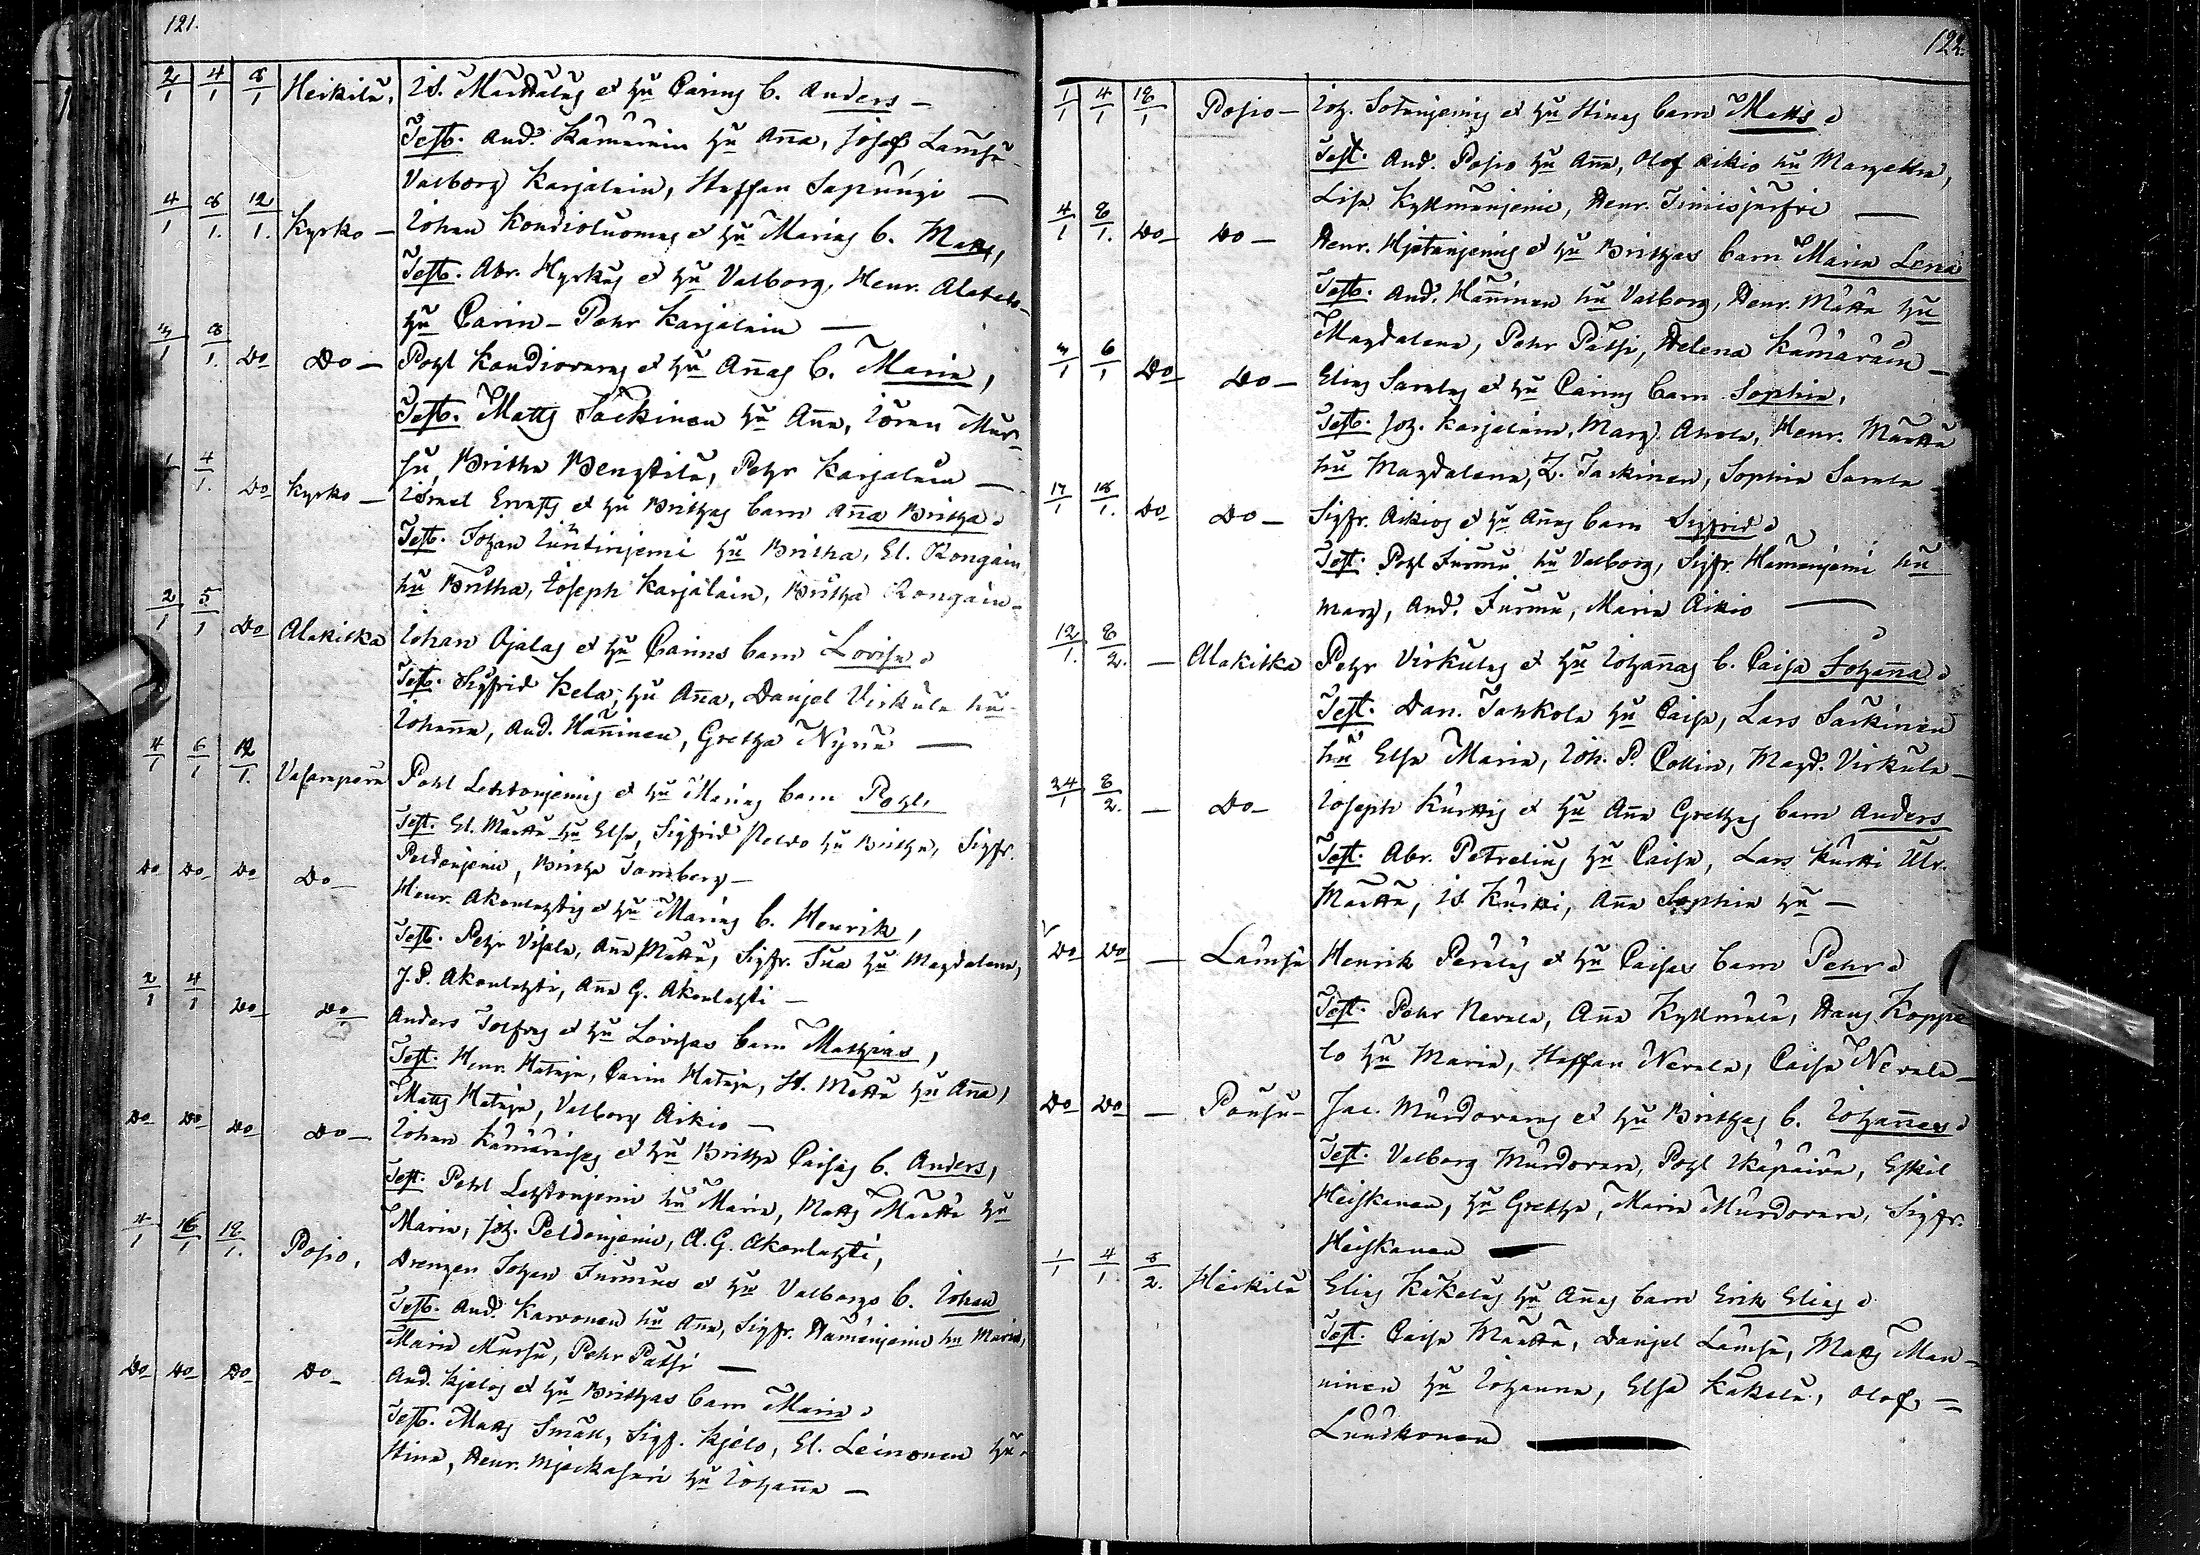 121.
2/1 4/1 8/1 Heikilä, Is. Marttalas et hu Carins b. Anders —
Test. And. Kämäräin hu Aña, Josef Lämsä
Valborg Karjalain, Staffan Sapungi —
4/1 8/1. 12/1. Kyrko — Johan Kondioluomas et hu Marias b. Matts,
Test. Abr. Hyrkäs et hu Valborg, Henr. Alatalo
hu Carin — Pehr Karjalain —
3/1 8/1. Do Do — Pohl Kondiovaras et hu Añas b. Maria,
Test. Matts Säckinen hu Aña, Jöran Mur-
su, Britha Bengtilä, Pehr Karjalain —
1/1 4/1. Do Kyrko — Ismael Ervasts et hu Brithas barn Aña Britha
Test. Johan Luntinjemi hu Britha, El. Rongain
hu Britha, Joseph Karjalain, Britha Rongain —
2/1 5/1 Do Alakitka Johan Ojalas et hu Carins barn Lovisa
Test. Sigfrid Kela, hu Aña, Danjel Virkula hu
Johaña, And. Hañinen, Gretha Nyna —
4/1 6/1 12/1. Vasarapera Pohl Lehtonjemis et hu Marias barn Pohl.
Test. El. Määttä hu Elsa, Sigfrid Peldo hu Britha, Sigfr.
Peldonjemi, Britha Tornberg —
Do Do Do Do — Henr. Akonlahtis et hu Marias b. Henrik,
Test. Pehr Visala, Aña Määttä, Sigfr. Sua hu Magdalena,
J. P. Akonlahti, Aña G. Akonlahti —
2/1 4/1 Do Do Anders Tolfvas et hu Lovisas barn Mathias,
Test. Henr. Hataja, Carin Hataja, H. Määttä hu Aña,
Matts Hataja, Valborg Aikio —
Do Do Do Do — Johan Kämäräises et hu Britha Caisas b. Anders,
Test. Pohl Lehtonjemi hu Maria, Matts Määttä hu
Maria, Joh. Peldonjemi, A. G. Akonlahti,
4/1 16/1 18/1. Posio, Drengen Johan Jurmus et hu Valborgs b. Johan
Test. And. Karvonen hu Aña, Sigfr. Hämenjemi hu Maria,
Maria Mursu, Pehr Patsi —
Do Do Do Do — And. Kjelos et hu Brithas barn Maria
Test. Matts Smäll, Sigf. Kjelo, El. Leinonen hu
Stina, Henr. Mjockasuri hu Johaña —
122.
1/1 4/1 18/1 Posio — Joh. Sotenjemis et hu Stinas barn Matts
Test. And. Posio hu Aña, Olof Aikio hu Margetha,
Lisa Kyllmänjemi, Henr. Timisjärfvi —
4/1 8/1. Do — Do — Henr. Hjetanjemis et hu Brithas barn Maria Lena
Test. And. Hañinen hu Valborg, Henr. Määttä hu
Magdalena, Pehr Patsi, Helena Kämäräin —
3/1 6/1 Do Do — Elias Saralas et hu Carins barn Sophia,
Test. Joh. Karjalain, Marg. Ahola, Henr. Määttä
hu Magdalena, Z. Taskinen, Sophia Sarala
17/1 18/1. Do Do — Sigfr. Aikios et hu Añas barn Sigfrid
Test. Pohl Jurmu hu Valborg, Sigfr. Hämenjemi hu
Marg, And. Jurmu, Maria Aikio —
12/1. 8/2. — Alakitka Pehr Virkulas et hu Johañas b. Caisa Johaña
Test. Dan. Tahkola hu Caisa, Lars Säckinen
hu Elsa Maria, Joh. P. Collin, Magd. Virkula —
24/1 8/2. — Do — Joseph Kurttis et hu Aña Grethas barn Anders
Test. Abr. Petrelius hu Caisa, Lars Kurtti Ulr.
Määttä, Is Kurtti, Aña Sophia hu —
Do Do — Lämsä Henrik Peräläs et hu Caisas barn Pehr
Test. Pehr Nevala, Aña Kyllmälä, Hans Koppe
lo hu Maria, Staffan Nevala, Caisa Nevala —
Do Do — Pousu — Jac. Murdovaras et hu Brithas b. Johañes
Test. Valborg Murdovara, Pohl Käpäivä, Eskil
Heiskanen, hu Gretha, Maria Murdovara, Sigfr.
Heiskanen —
1/1 4/1. 8/2. Heikilä Elias Käkeläs hu Añas barn Erik Elias
Test. Caisa Määttä, Danjel Lämsä, Matts Man-
ninen hu Johanna, Elsa Käkelä, Olof =
Luuskonen —